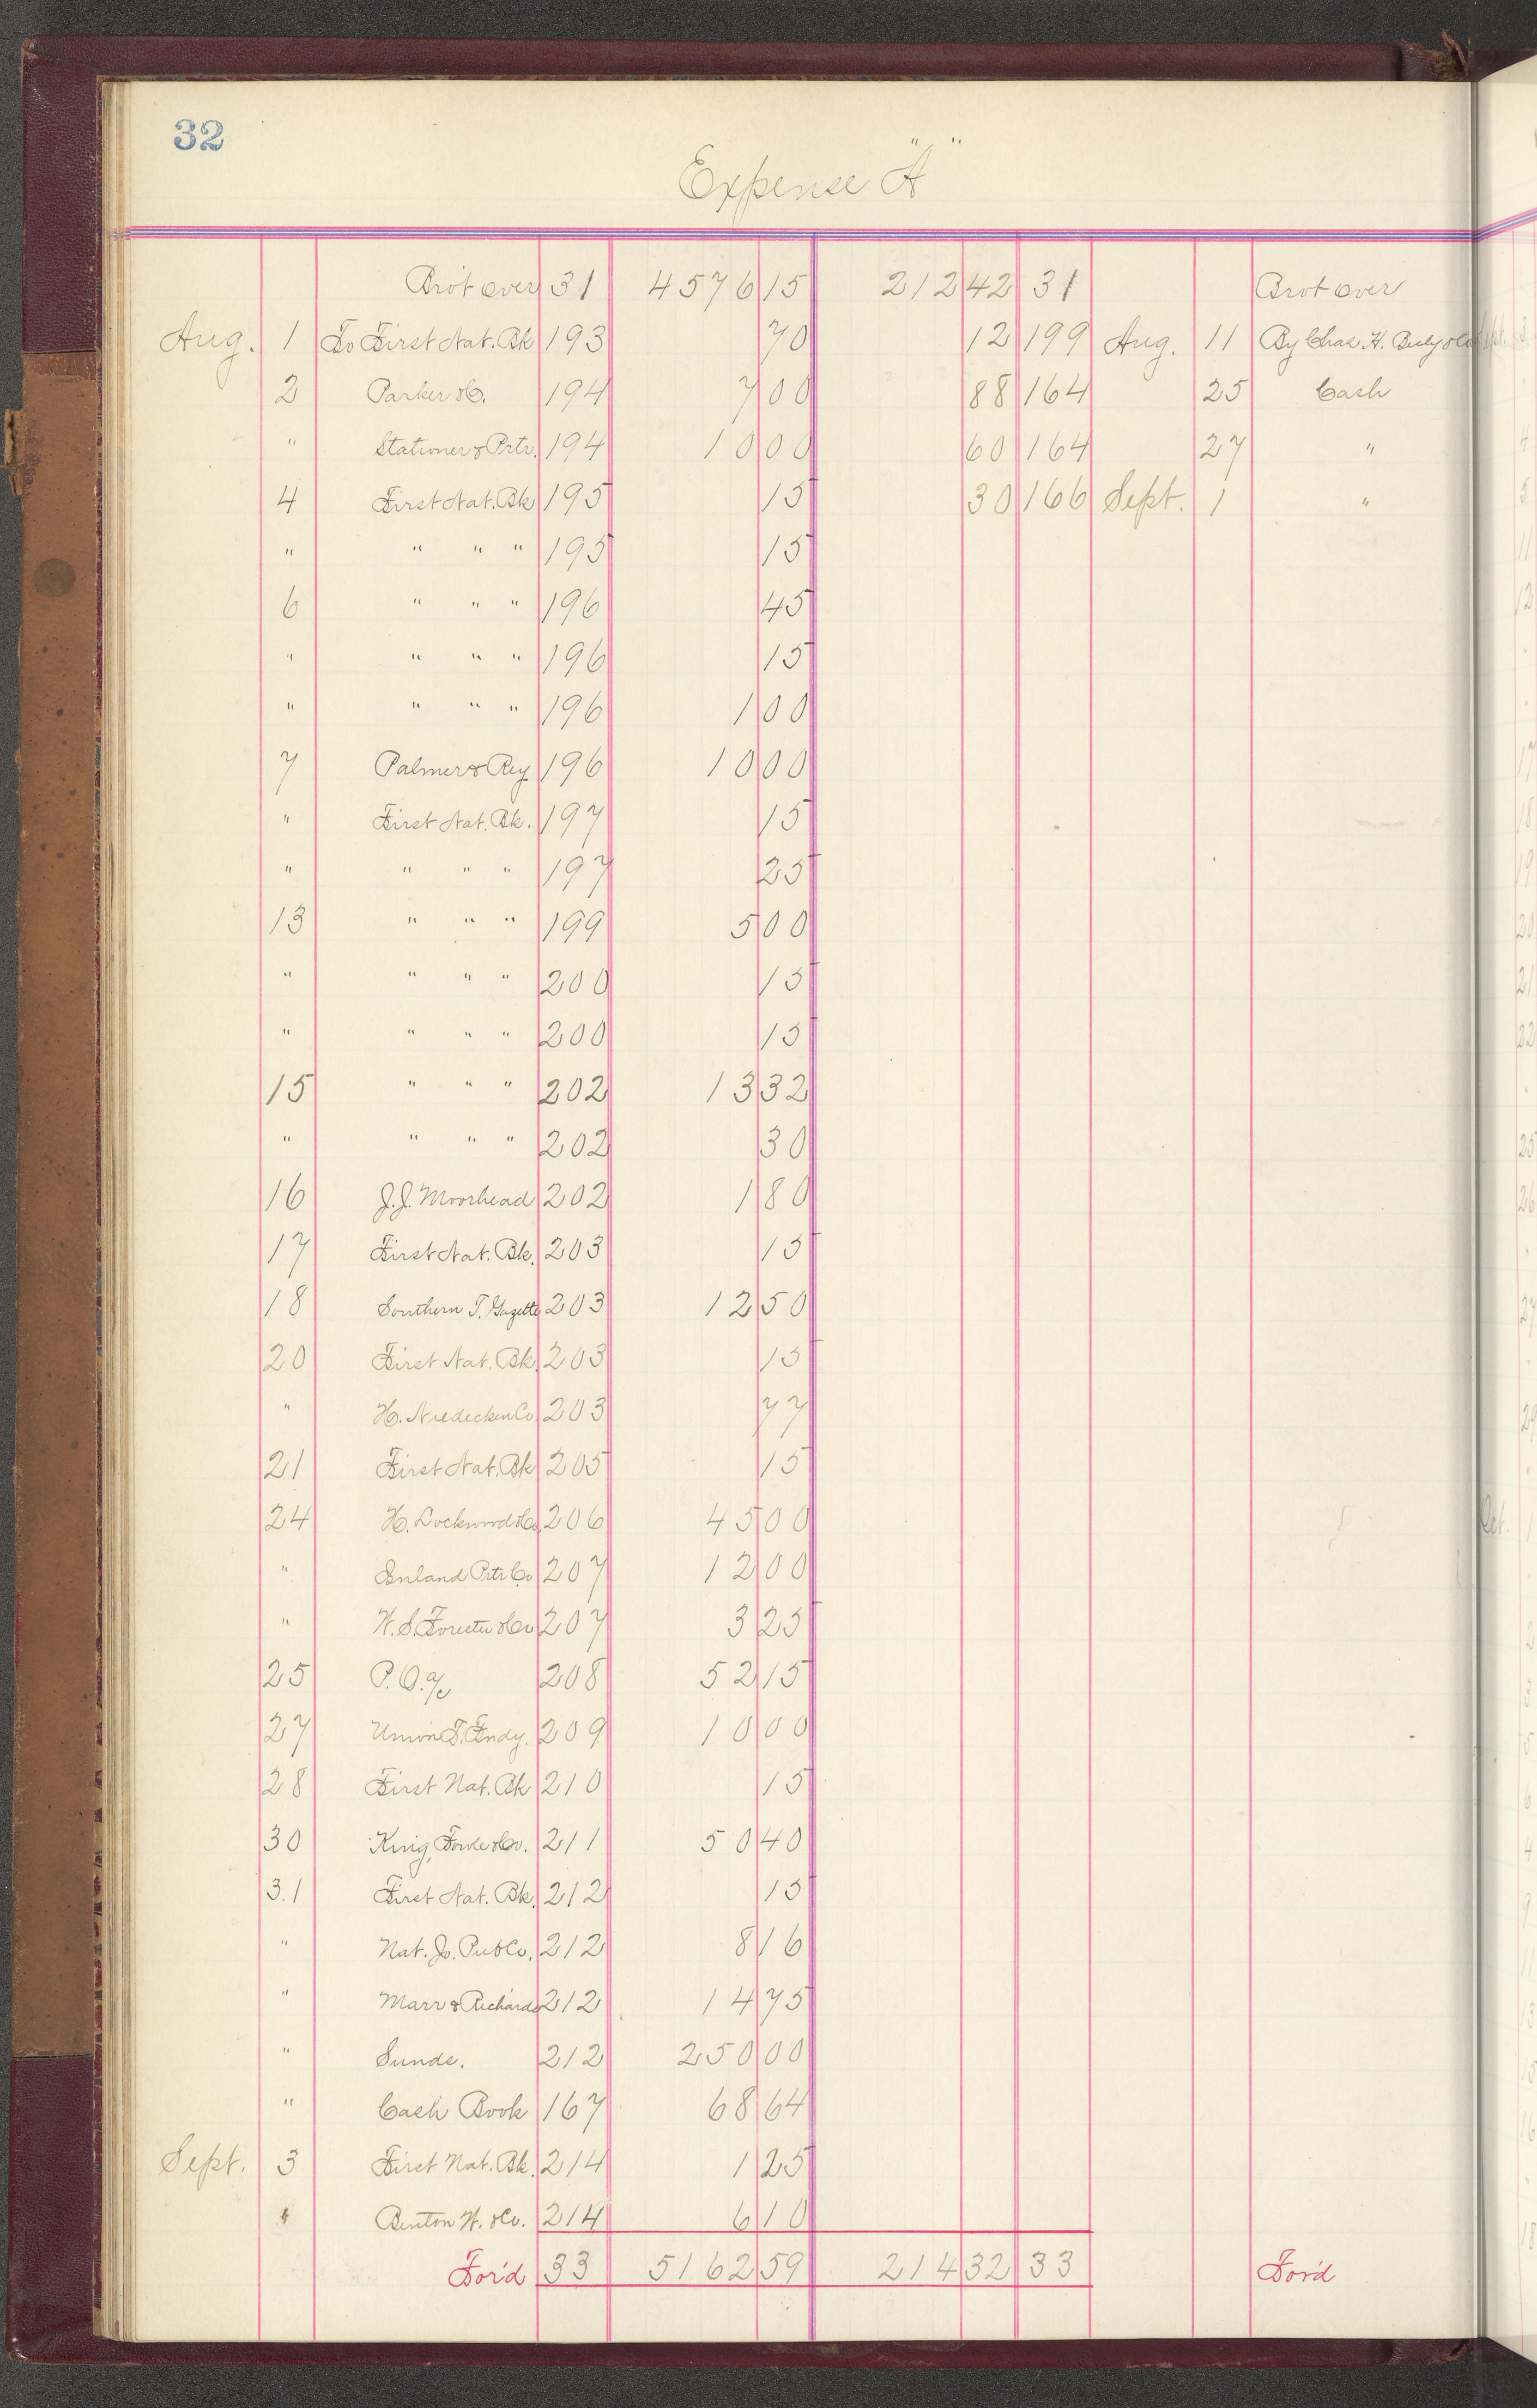 32
Expense "A"
Brot over 31 4576 15 212 42 31 Brot over
Aug. 1 To First Nat. Bk 193 70 12 199 Aug. 11 By Chas. H.
2 Parker & Co. 194 7 00 88 164 25 Cash
" Stationer & Prtr. 194 10 00 60 164 27 "
4 First Nat. Bk 195 15 30 166 Sept. 1 "
" " " " 195 15
6 " " " 196 45
" " " " 196 15
" " " " 196 1 00
7 Palmer & Rey 196 10 00
" First Nat. Bk. 197 15
" " " " 197 25
13 " " " 199 5 00
" " " " 200 15
" " " " 200 15
15 " " " 202 13 32
" " " " 202 30
16 J. J. Moorhead 202 1 80
17 First Nat. Bk. 203 15
18 Southern T. Gazette 203 12 50
20 First Nat. Bk. 203 15
" H. Niedecken Co. 203 77
21 First Nat. Bk 205 15
24 H. Lockwood & Co. 206 45 00
" Inland Prtr Co 207 12 00
" 207 3 25
25 P. O. a/c 208 52 15
27 Union T. Fndy. 209 10 00
28 First Nat. Bk 210 15
30 King, Fowle & Co. 211 50 40
31 First Nat. Bk. 212 15
" Nat. Jo. Pub Co. 212 8 16
" Marr & Richards 212 14 75
" Sunds. 212 250 00
" Cash Book 167 68 64
Sept. 3 First Nat. Bk. 214 1 25
" Benton W. & Co. 214 6 10
For'd 33 5162 59 214 32 33 For'd